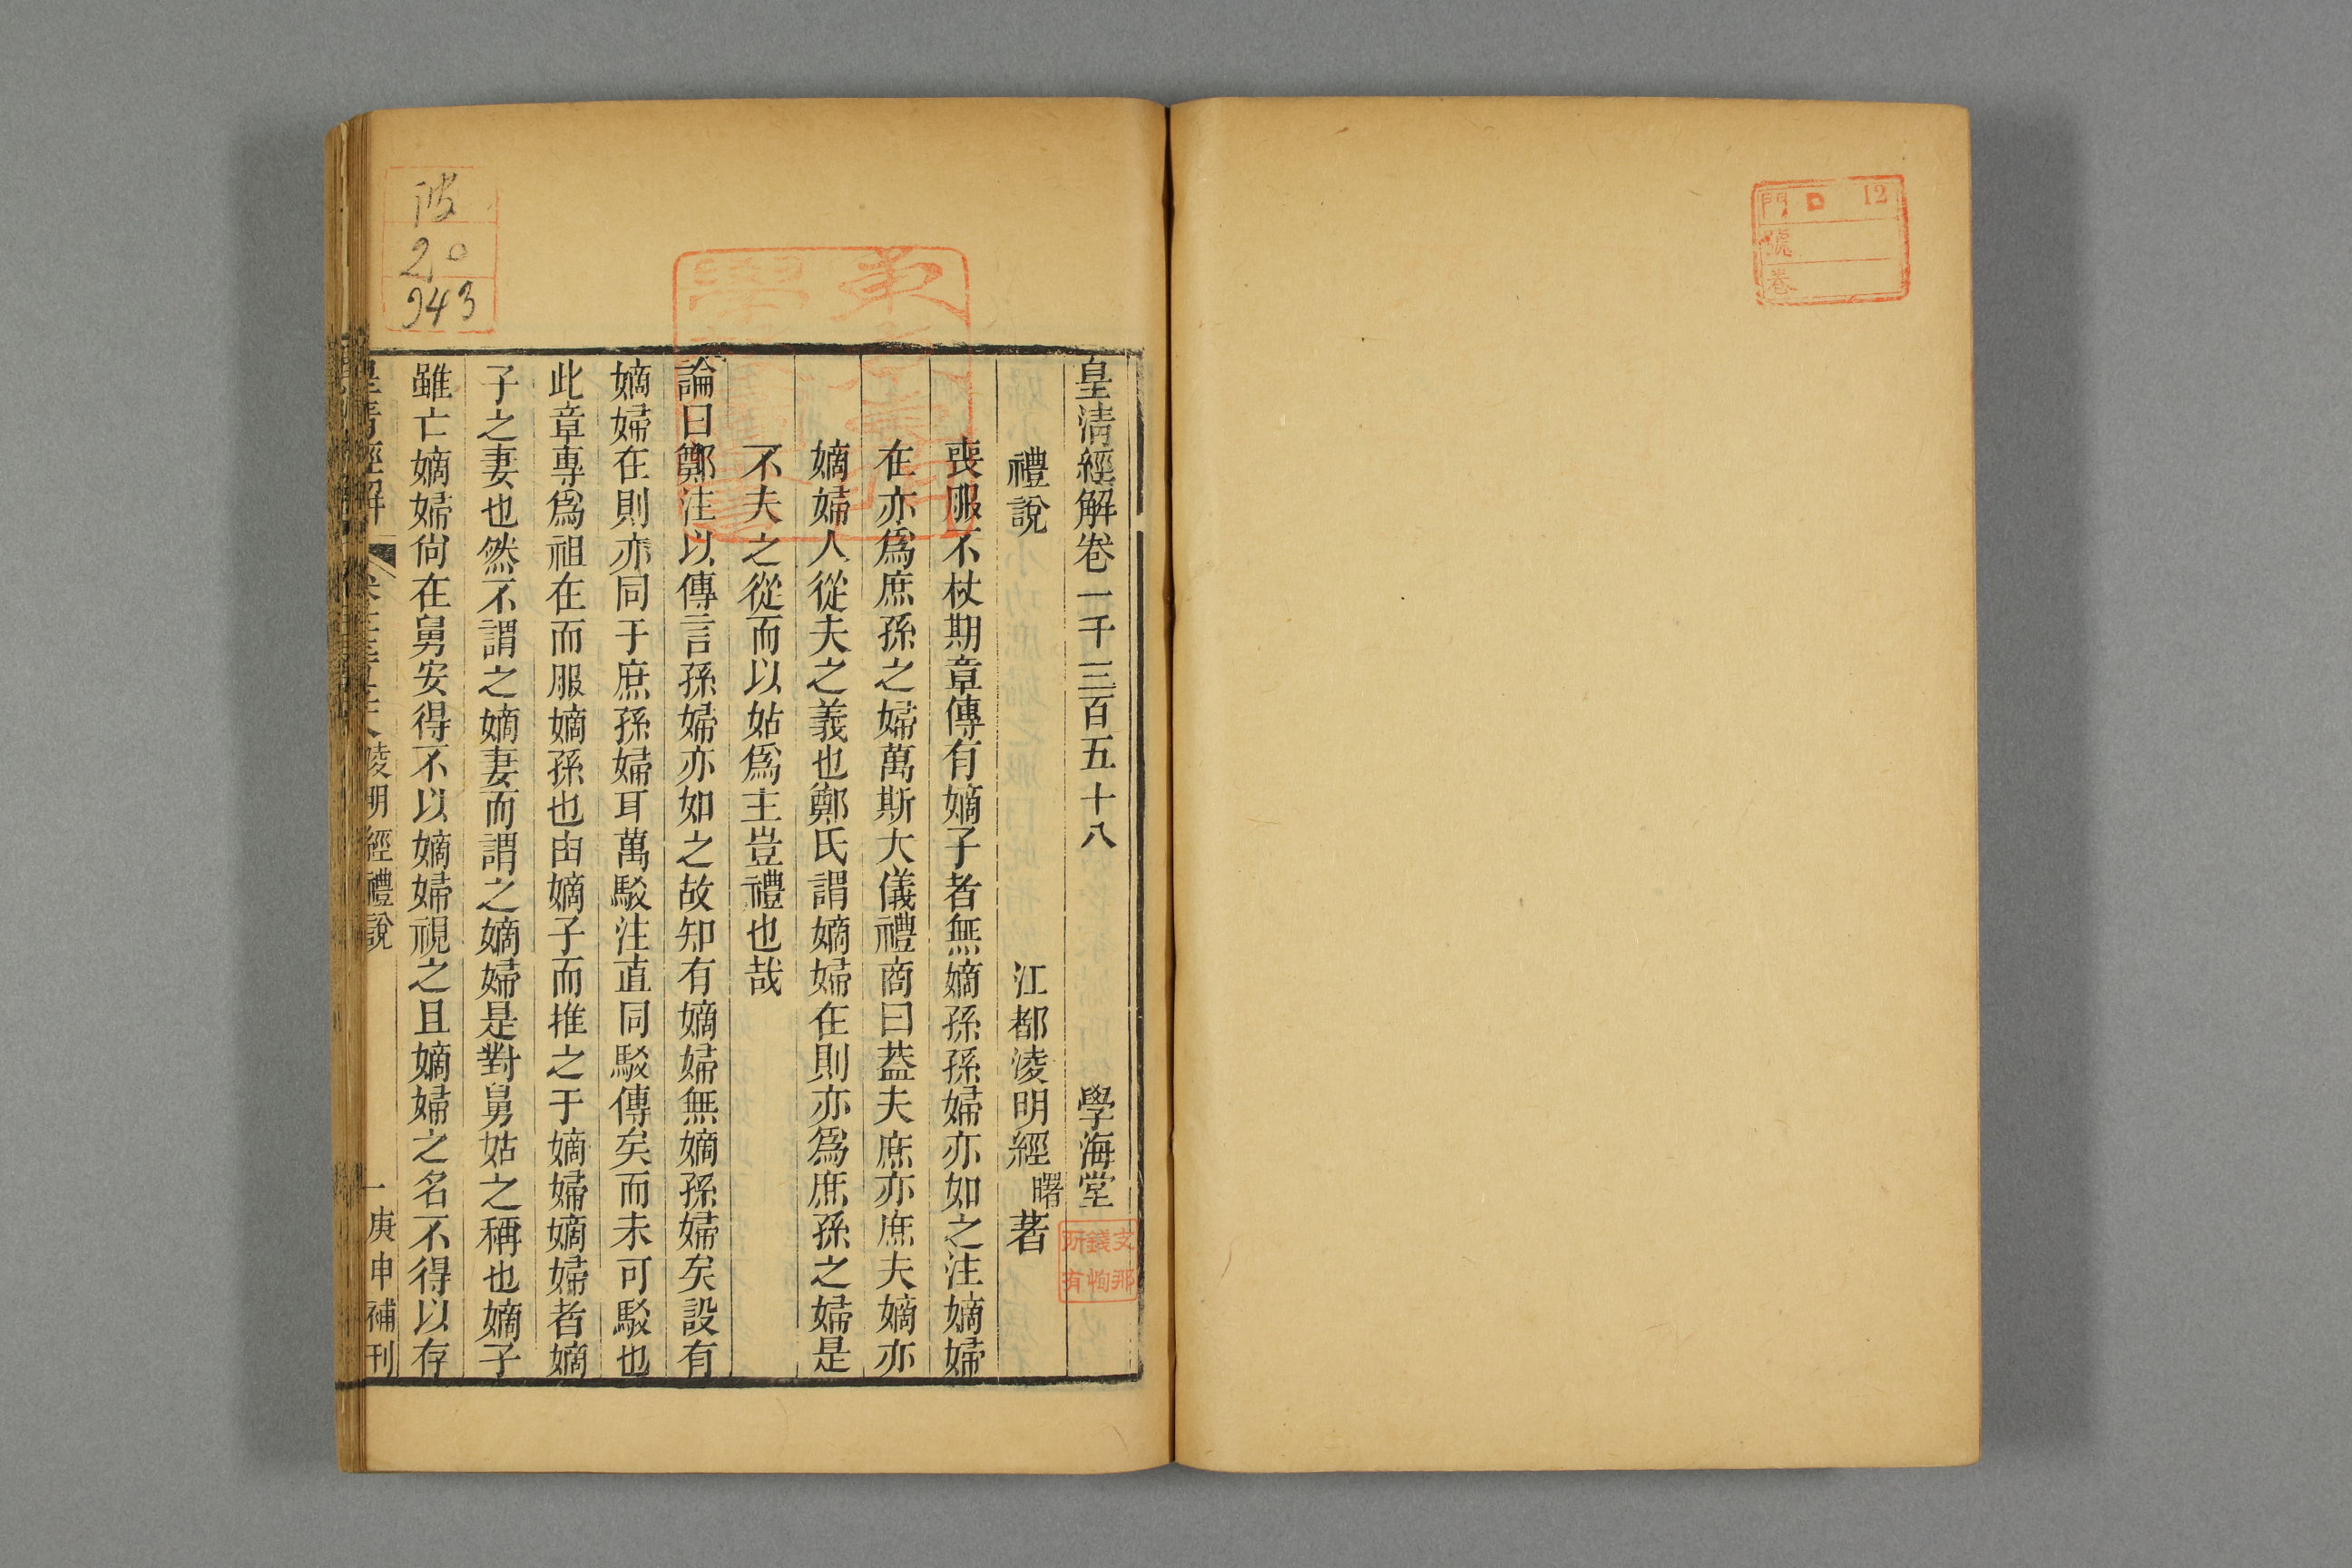 門 12
號
卷
皇清經解卷一千三百五十八 學海堂
禮說 江都淩明經曙著
喪服不杖期章傳有嫡子者無嫡孫孫婦亦如之注嫡婦
在亦爲庶孫之婦萬斯大儀禮商曰葢夫庶亦庶夫嫡亦
嫡婦人從夫之義也鄭氏謂嫡婦在則亦爲庶孫之婦是
不夫之從而以姑爲主豈禮也哉
論曰鄭注以傳言孫婦亦如之故知有嫡婦無嫡孫婦矣設有
嫡婦在則亦同于庶孫婦耳萬駁注直同駁傳矣而未可駁也
此章專爲祖在而服嫡孫也由嫡子而推之于嫡婦嫡婦者嫡
子之妻也然不謂之嫡妻而謂之嫡婦是對舅姑之稱也嫡子
雖亡嫡婦尙在舅安得不以嫡婦視之且嫡婦之名不得以存
皇清經解 淩明經禮說 一 庚申補刊
支那
錢恂
所有
20
943